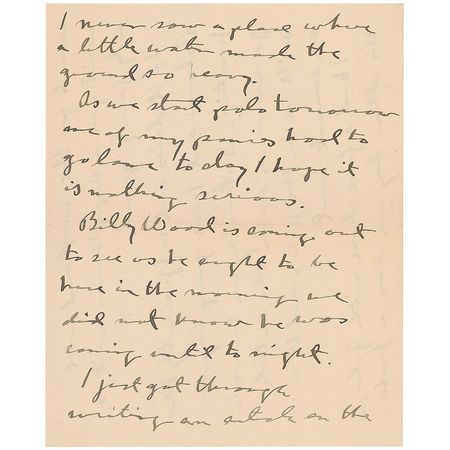 I never saw a place where
a little water made the
ground so heavy.
As we start polo tomorrow
one of my ponies had to
go lame to day I hope it
is nothing serious.
Billy Wood is coming out
to see us he ought to be
here in the morning we
did not know he was
coming until to night.
I just got through
writing an article on the